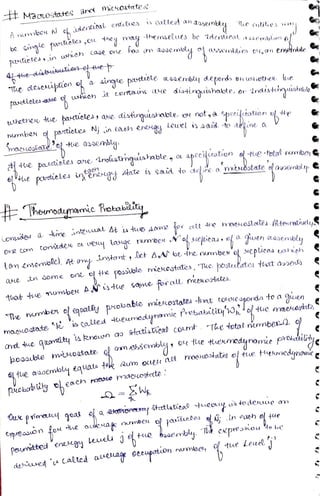 # Macrostates and microstates:
A number N of identical entities is called an assembly. The entities may
be single particles, or they may themselves be identical assemblies of
particles, in which case one has an assembly of assemblies or, an ensemble
The description of a single particle assembly depends on whether the
particles of which it contains are distinguishable, or indistinguishable
whether the particles are distinguishable or not, a specification of the
number of particles Nj in each energy level is said to define a
macrostate of the assembly.
If the particles are indistinguishable, a specification of the total number
of the particles in each energy state is said to define a microstate of assembly
# Thermodynamic Probability
Consider a time interval Δt is the same for all the macrostates. Alternatively,
one can consider a very large number N of replicas, of a given assembly
(an ensemble). At any instant, let ΔN be the number of replicas which
are in some one of the possible microstates. The postulates that asserts
that the number ΔN is the same for all microstates.
The number of equally probable microstates that corresponds to a given
macrostate 'k' is called thermodynamic Probability Wk of the macrostate,
and the quantity is known as statistical count. The total number Ω of
possible microstate of an assembly, or the thermodynamic probability
of the assembly equals the sum over all macrostates of the thermodynamic
probability of each macrostate:
Ω = ΣWk
Our primary goal of a statistical theory is to derive an
expression for the average number of particles Nj in each of the
permitted energy levels j of the assembly. The expression to be
derived is called average occupation number of the level j